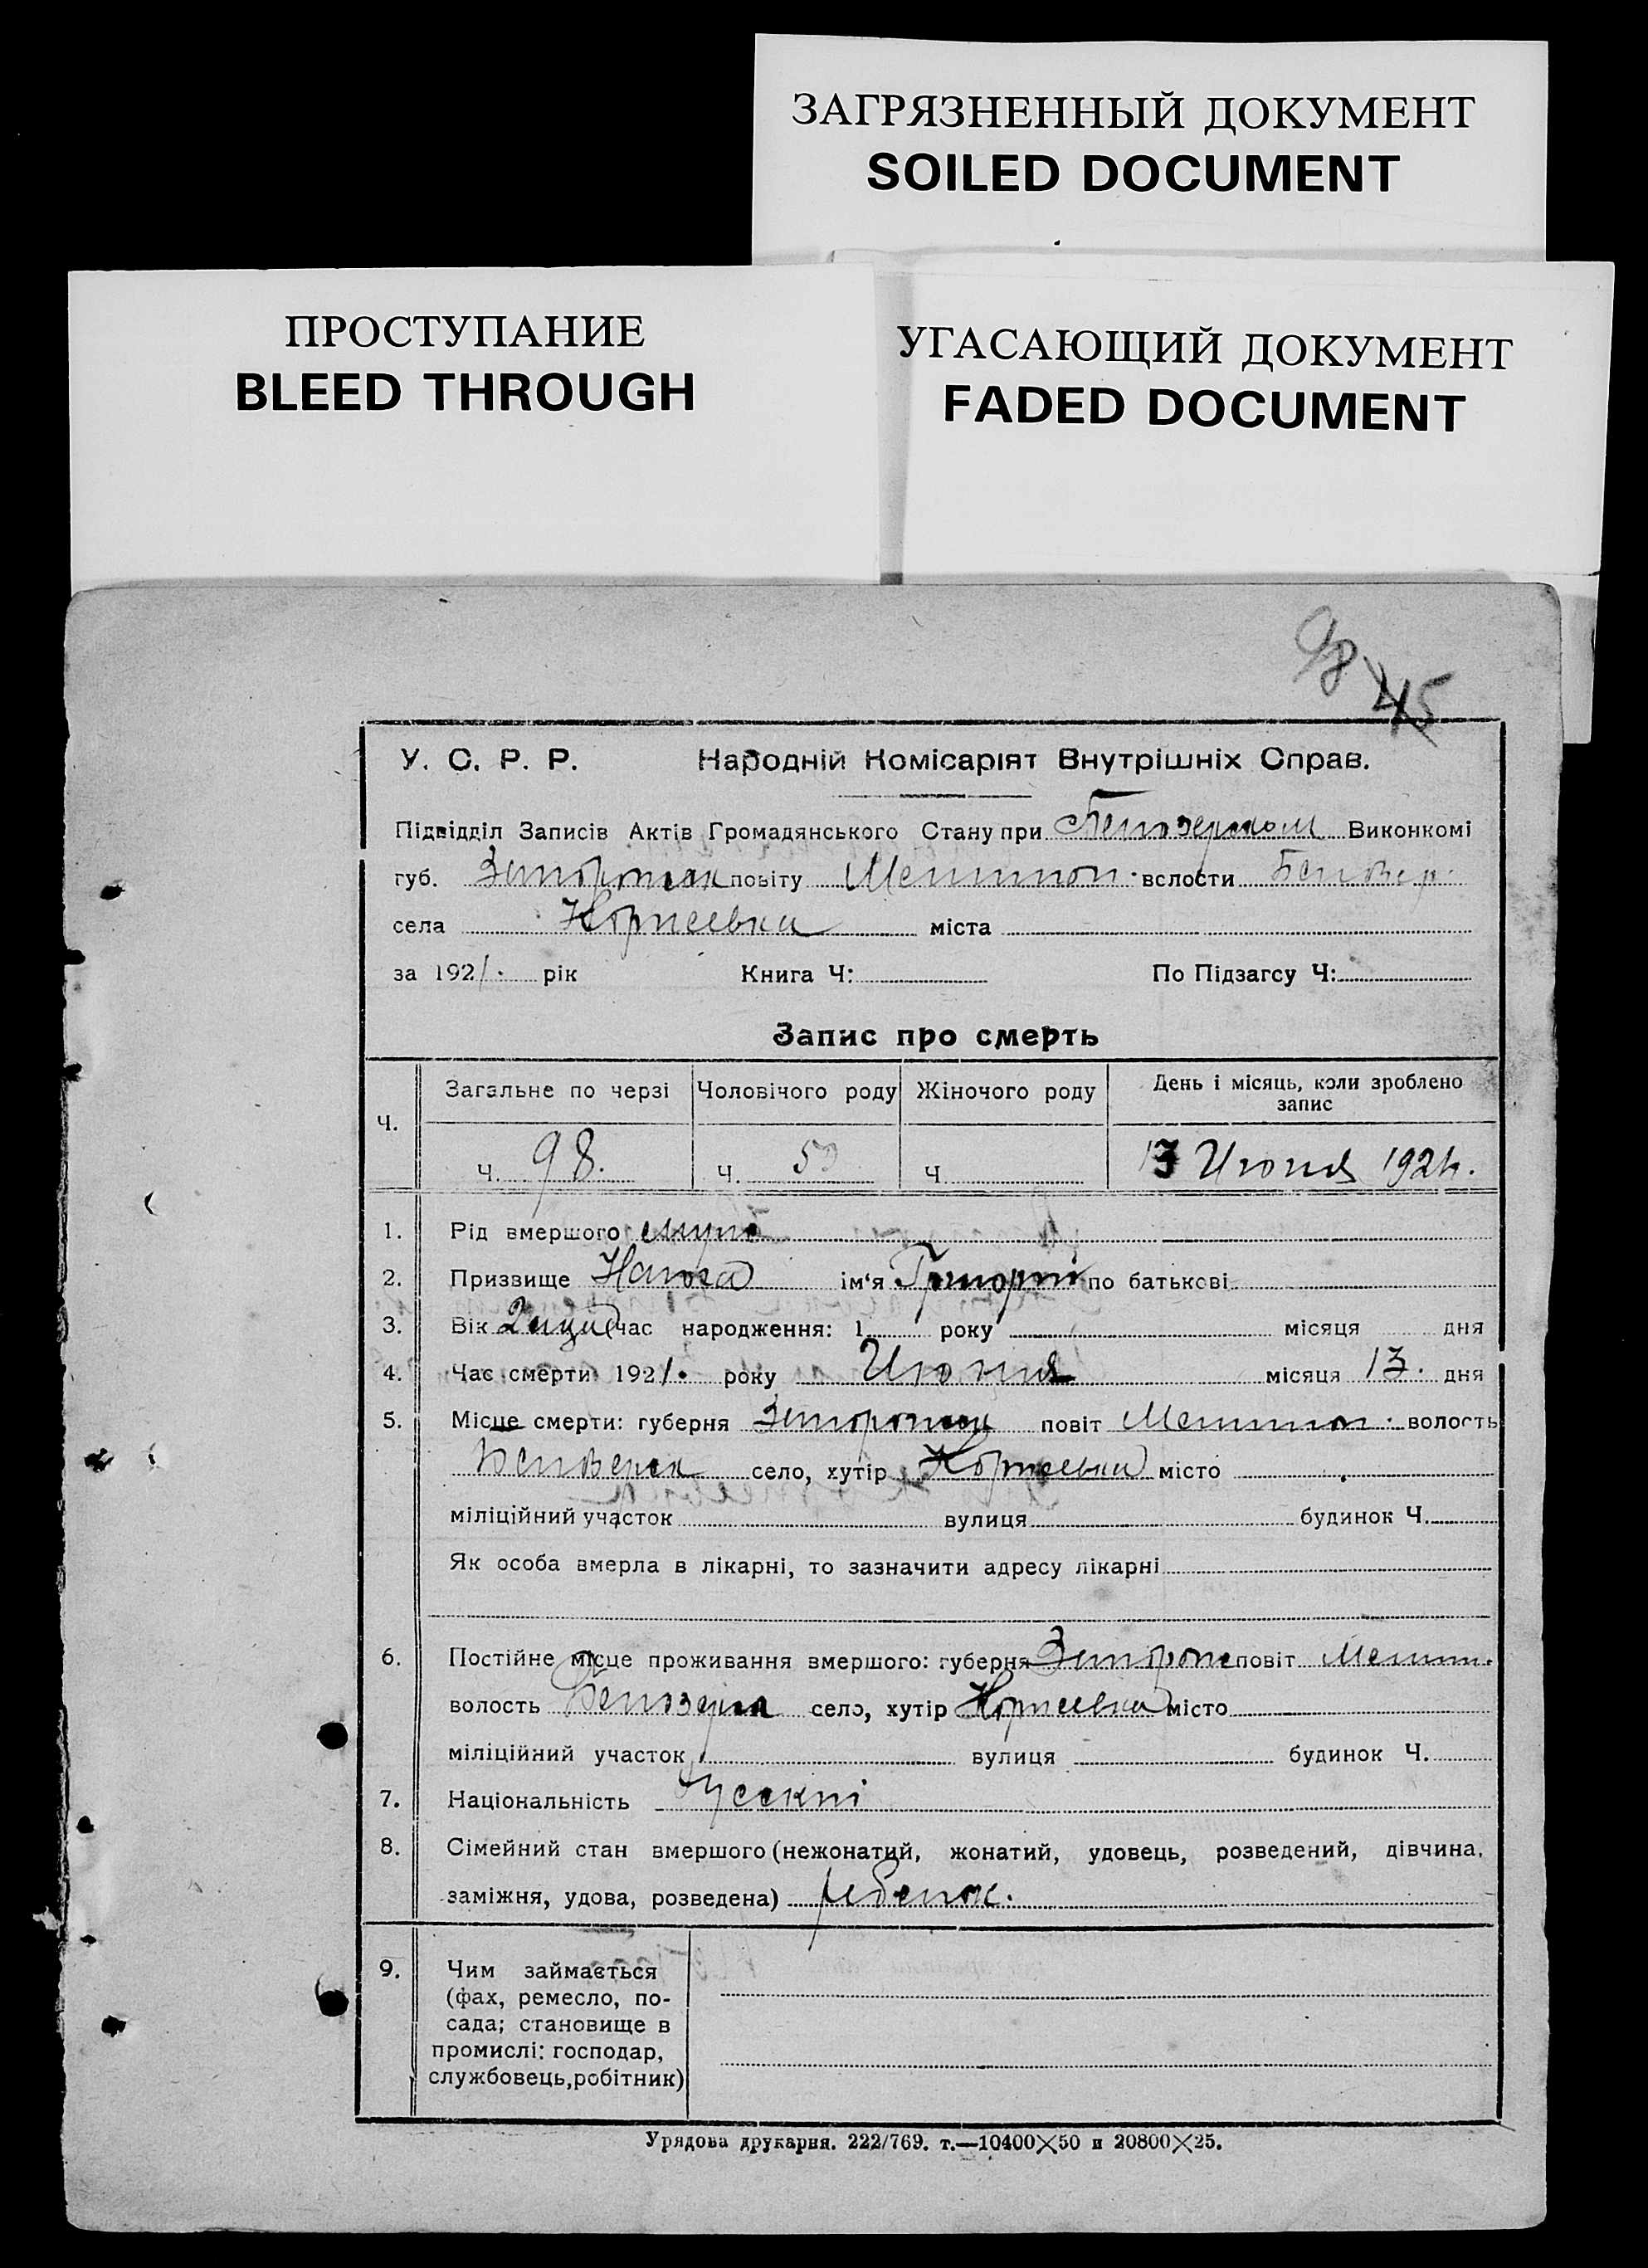 ЗАГРЯЗНЕННЫЙ ДОКУМЕНТ
SOILED DOCUMENT
ПРОСТУПАНИЕ
BLEED THROUGH
УГАСАЮЩИЙ ДОКУМЕНТ
FADED DOCUMENT
98
45
У. С. Р. Р. Народній Комісаріят Внутрішніх Справ.
Підвідділ Записів Актів Громадянського Стану при Белозерском Виконкомі
губ. Запорожск повіту Мелитоп. волости Белозер.
села міста
за 1921. рік Книга Ч: По Підзагсу Ч:
Запис про смерть
Ч. Загальне по черзі Чоловічого роду Жіночого роду День і місяць, коли зроблено запис
Ч. 98. Ч. Ч. 13 Июня 1921г.
1. Рід вмершого
2. Призвище ім'я Григорий по батькові
3. Вік час народження: 1 року місяця дня
4. Час смерти 1921. року Июня місяця 13. дня
5. Місце смерти: губерня Запорожск повіт Мелитоп. волость
Белозерск село, хутір місто
міліційний участок вулиця будинок Ч.
Як особа вмерла в лікарні, то зазначити адресу лікарні
6. Постійне місце проживання вмершого: губерня Запорож повіт Мелит.
волость Белозерск село, хутір місто
міліційний участок вулиця будинок Ч.
7. Національність Русский
8. Сімейний стан вмершого (нежонатий, жонатий, удовець, розведений, дівчина,
заміжня, удова, розведена) ребенок.
9. Чим займається
(фах, ремесло, по-
сада; становище в
промислі: господар,
службовець,робітник)
Урядова друкарня. 222/769. т.—10400×50 и 20800×25.